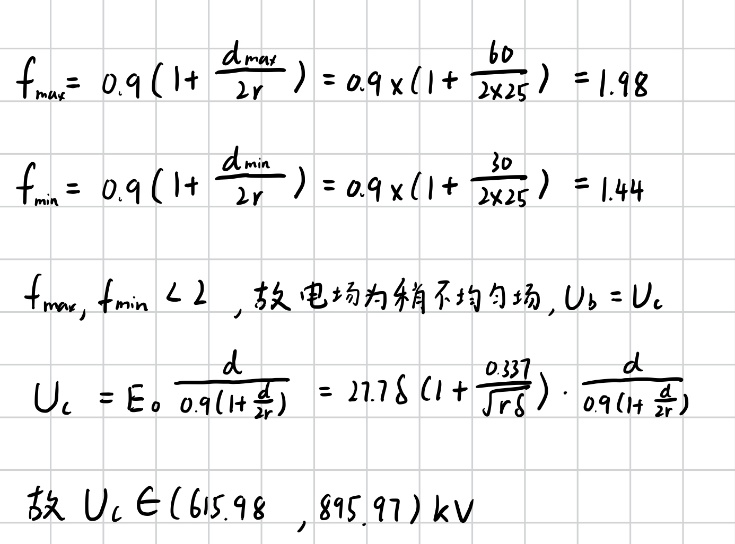 f_max = 0.9(1+ d_max/2r) = 0.9×(1+ 60/2×25) = 1.98
f_min = 0.9(1+ d_min/2r) = 0.9×(1+ 30/2×25) = 1.44
f_max, f_min < 2 ,故电场为稍不均匀场, U_b = U_c
U_c = E_0 d/0.9(1+ d/2r) = 27.7δ(1+ 0.337/√rδ)· d/0.9(1+ d/2r)
故 U_c ∈ (615.98 , 895.97) kV